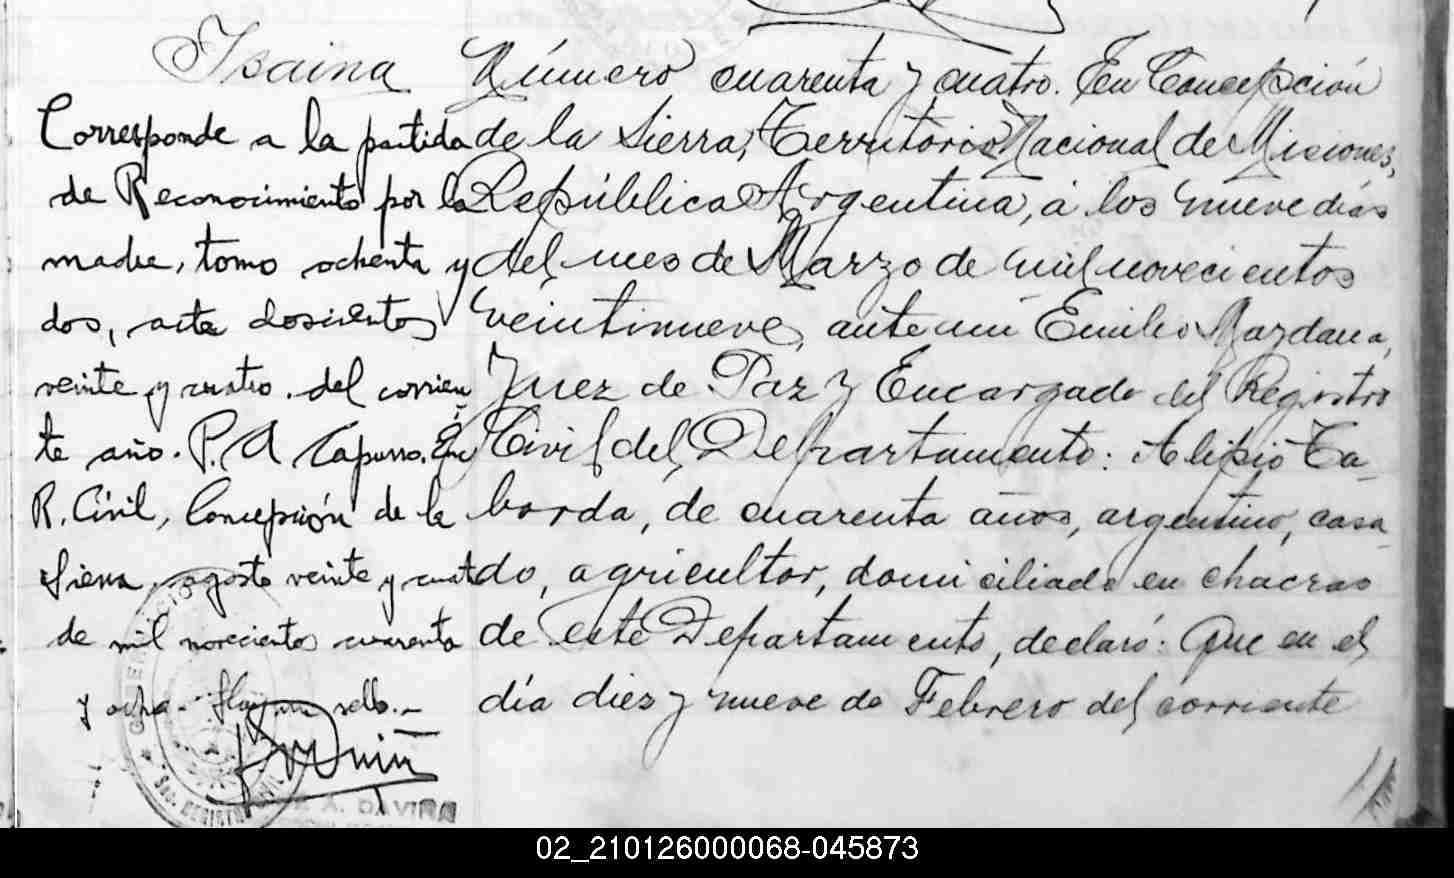 Isaina
Corresponde a la partida
de Reconocimiento por la
madre, tomo ochenta y
dos, acta doscientos
veinte y cuatro del corrien
te año. P. A
R. Civil, Concepción de la
Sierra, agosto veinte y cuatro
de mil novecientos cuarenta
y ocho. Hay un sello.-
Número cuarenta y cuatro. En Concepción
de la Sierra, Territorio Nacional de Misiones,
República Argentina, á los nueve días
del mes de Marzo de mil novecientos
veintinueve, ante mí Emilio
Juez de Paz y Encargado del Registro
Civil del Departamento: Alipio Ta-
borda, de cuarenta años, argentino, casa-
do, agricultor, domiciliado en chacras
de este Departamento, declaró: Que en el
día diez y nueve de Febrero del corriente
02_210126000068-045873